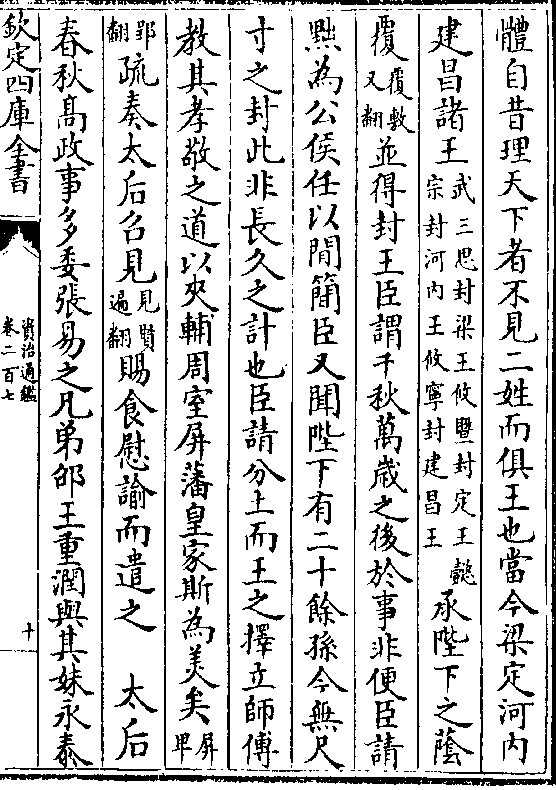 體自昔理天下者不見二姓而俱王也當今梁定河内
建昌諸王武三思封梁王攸暨封定王懿宗封河内王攸寧封建昌王承陛下之蔭
覆覆敷又翻並得封王臣謂千秋萬歲之後於事非便臣請
黜為公侯任以閒簡臣又聞陛下有二十餘孫今無尺
寸之封此非長久之計也臣請分土而王之擇立師傅
教其孝敬之道以夾輔周室屏藩皇家斯為美矣屏卑
郢翻疏奏太后召見見賢遍翻賜食慰諭而遣之　太后
春秋高政事多委張易之兄弟邵王重潤與其妹永泰
欽定四庫全書
資治通鑑
卷二百七
十